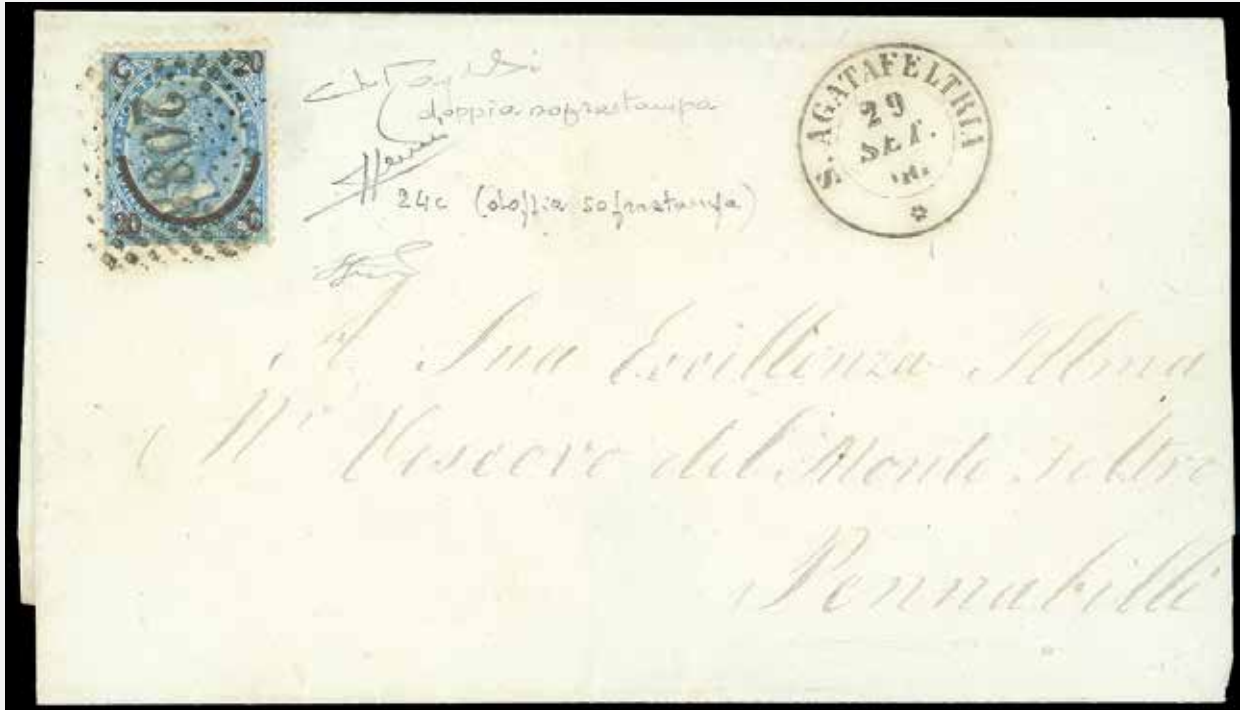 C 20
208
20 C
doppia soprastampa
24c (doppia soprastampa)
S. AGATAFELTRIA
29
SET.
66
A Sua Eccillenza Illma
Mr Vescovo del Monte Feltro
Pennabilli